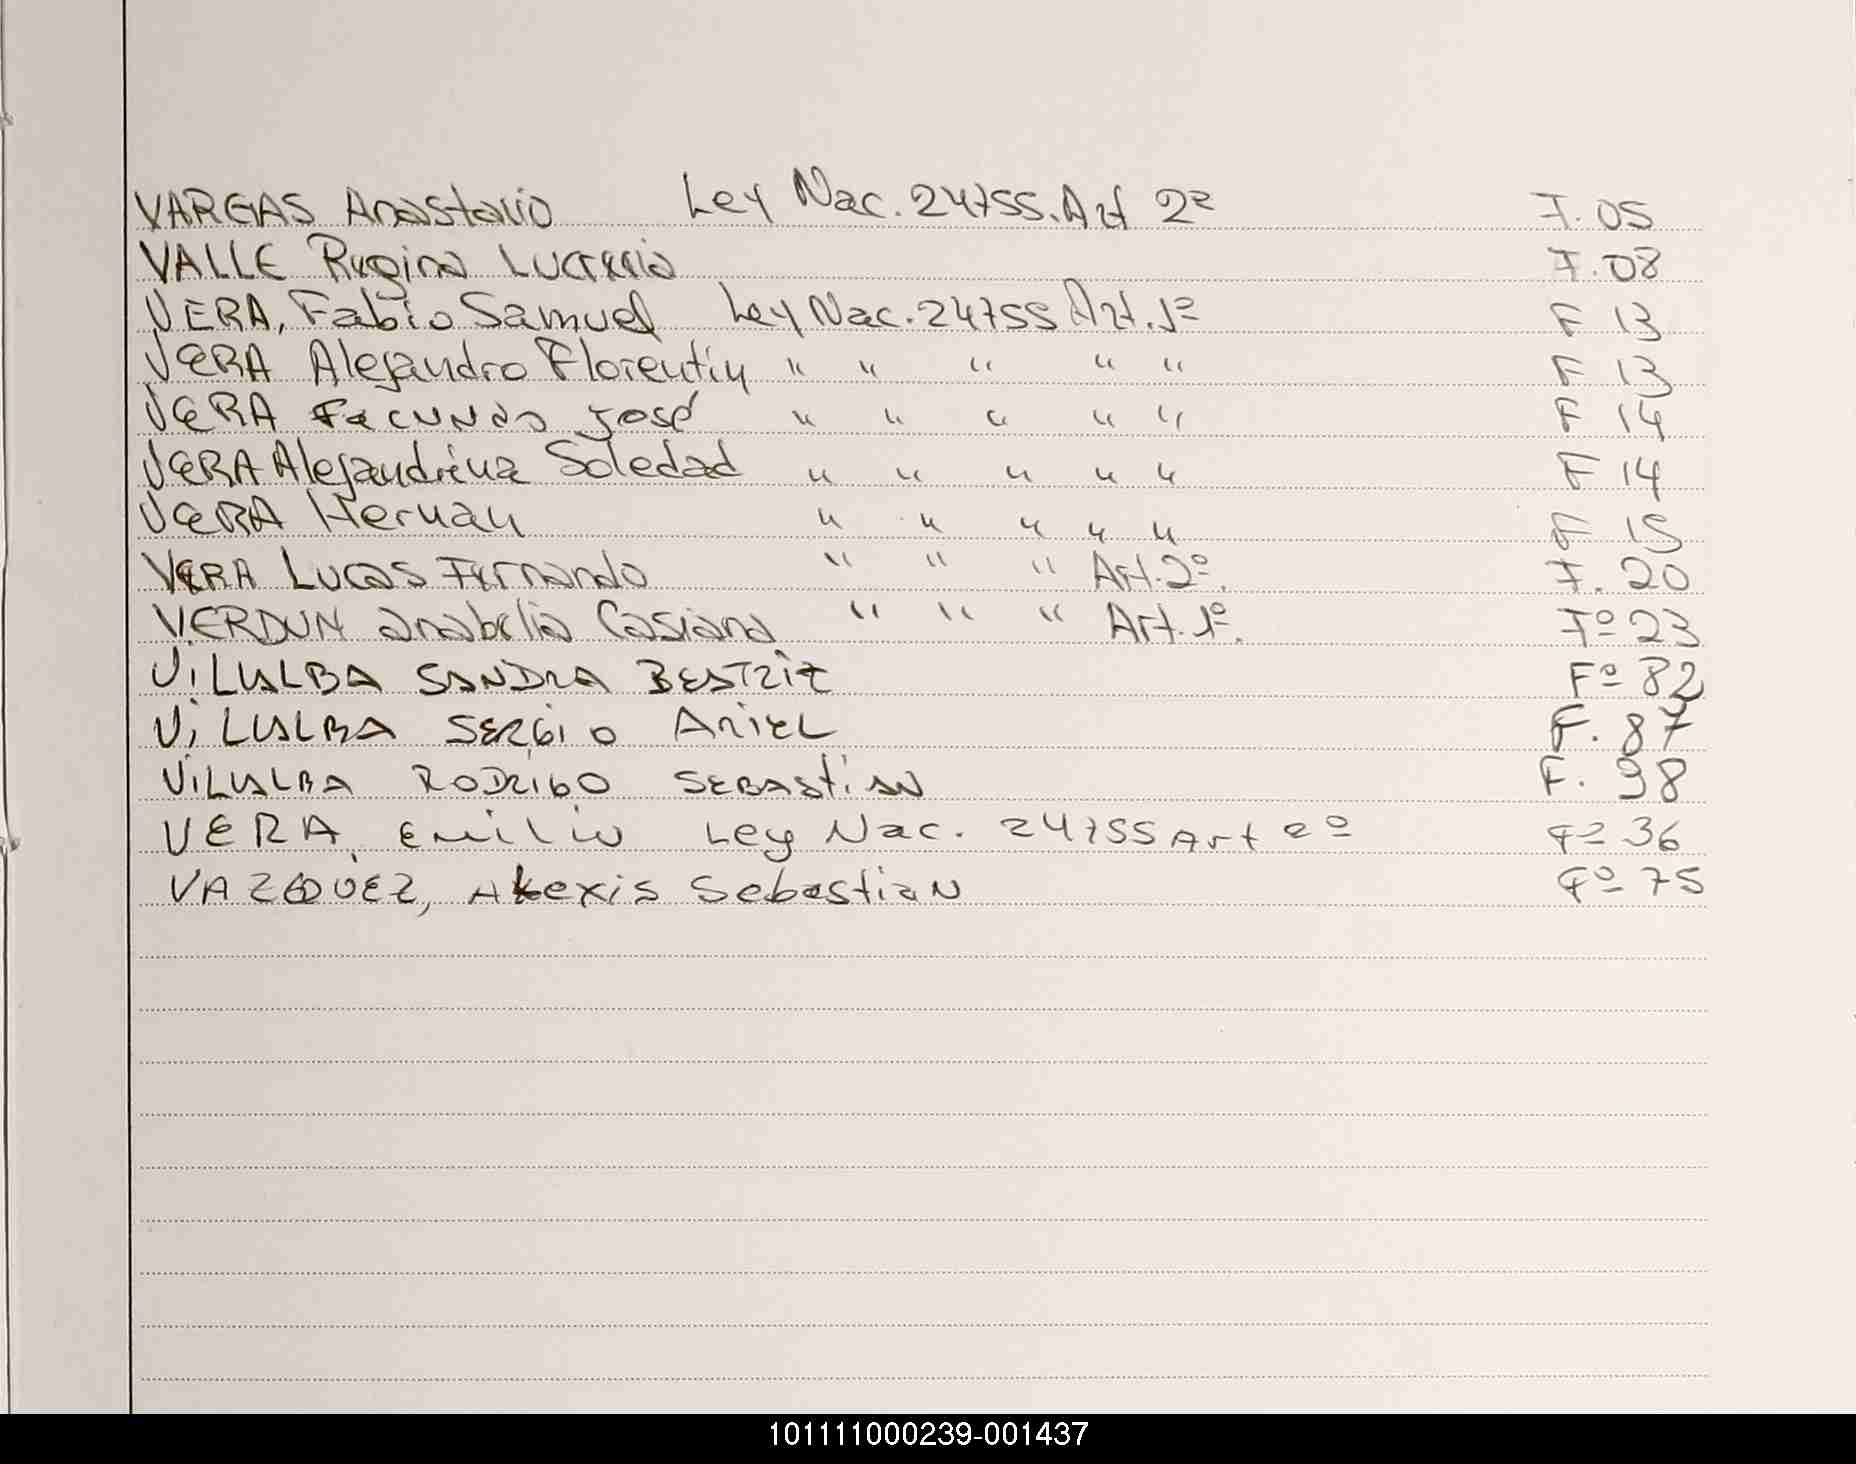 VARGAS Anastacio Ley Nac. 24755. Art 2º F. 05
VALLE Regina Lucrecia F. 08
VERA, Fabio Samuel Ley Nac. 24755 Art. 1º F 13
VERA Alejandro Florentin " " " " " F 13
VERA Facundo José " " " " " F 14
VERA Alejandrina Soledad " " " " " F 14
VERA Hernan " " " " " F 15
VERA Lucas Fernando " " " Art. 2º. F. 20
VERDUN Anabelia Casiana " " " Art. 1º. Fº 23
ViLLALBA SANDRA BEATRiZ Fº 82
ViLLALBA SERGiO ARiEL F. 87
ViLLALBA RODRiGO SEBAStiAN F. 98
VERA, Emilio Ley Nac. 24755 Art 2º Fº 36
VAZQUEZ, Alexis Sebastian Fº 75
101111000239-001437